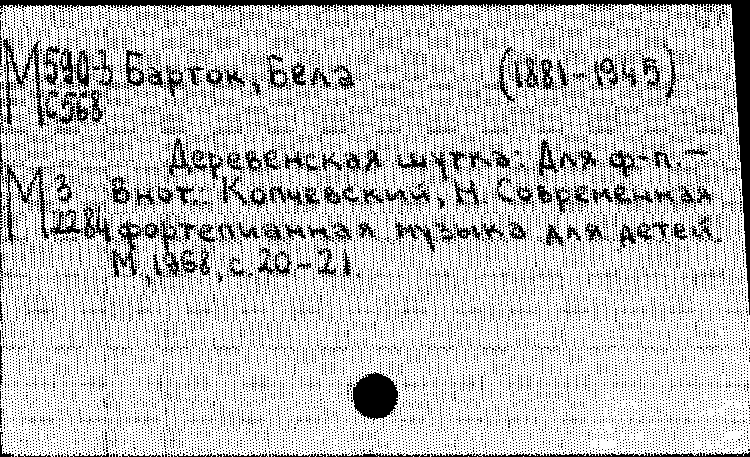 М 590-3 Барток, Бела (1881-1945)
С568
Деревенская шутка: Для ф.-п. –
М 3 В нот.: Копчевский, Н. Современная
2284 фортепианная музыка для детей.
М., 1968, с. 20-21.